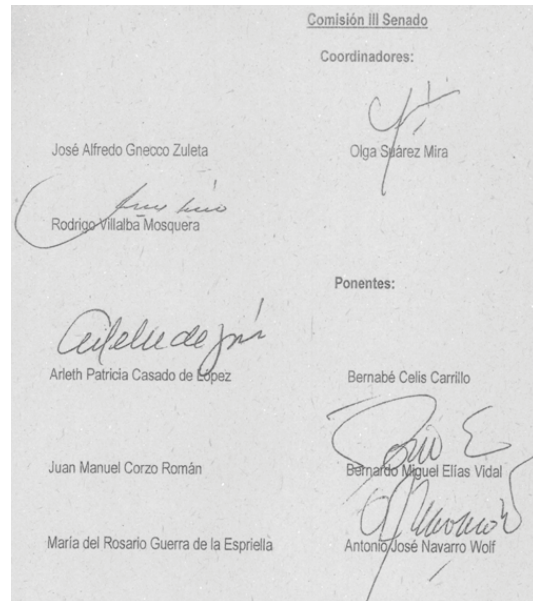 Comisión III Senado
Coordinadores:
José Alfredo Gnecco Zuleta
Olga Suárez Mira
Rodrigo Villalba Mosquera
Ponentes:
Arleth Patricia Casado de López
Bernabé Celis Carrillo
Juan Manuel Corzo Román
Bernardo Miguel Elías Vidal
María del Rosario Guerra de la Espriella
Antonio José Navarro Wolf